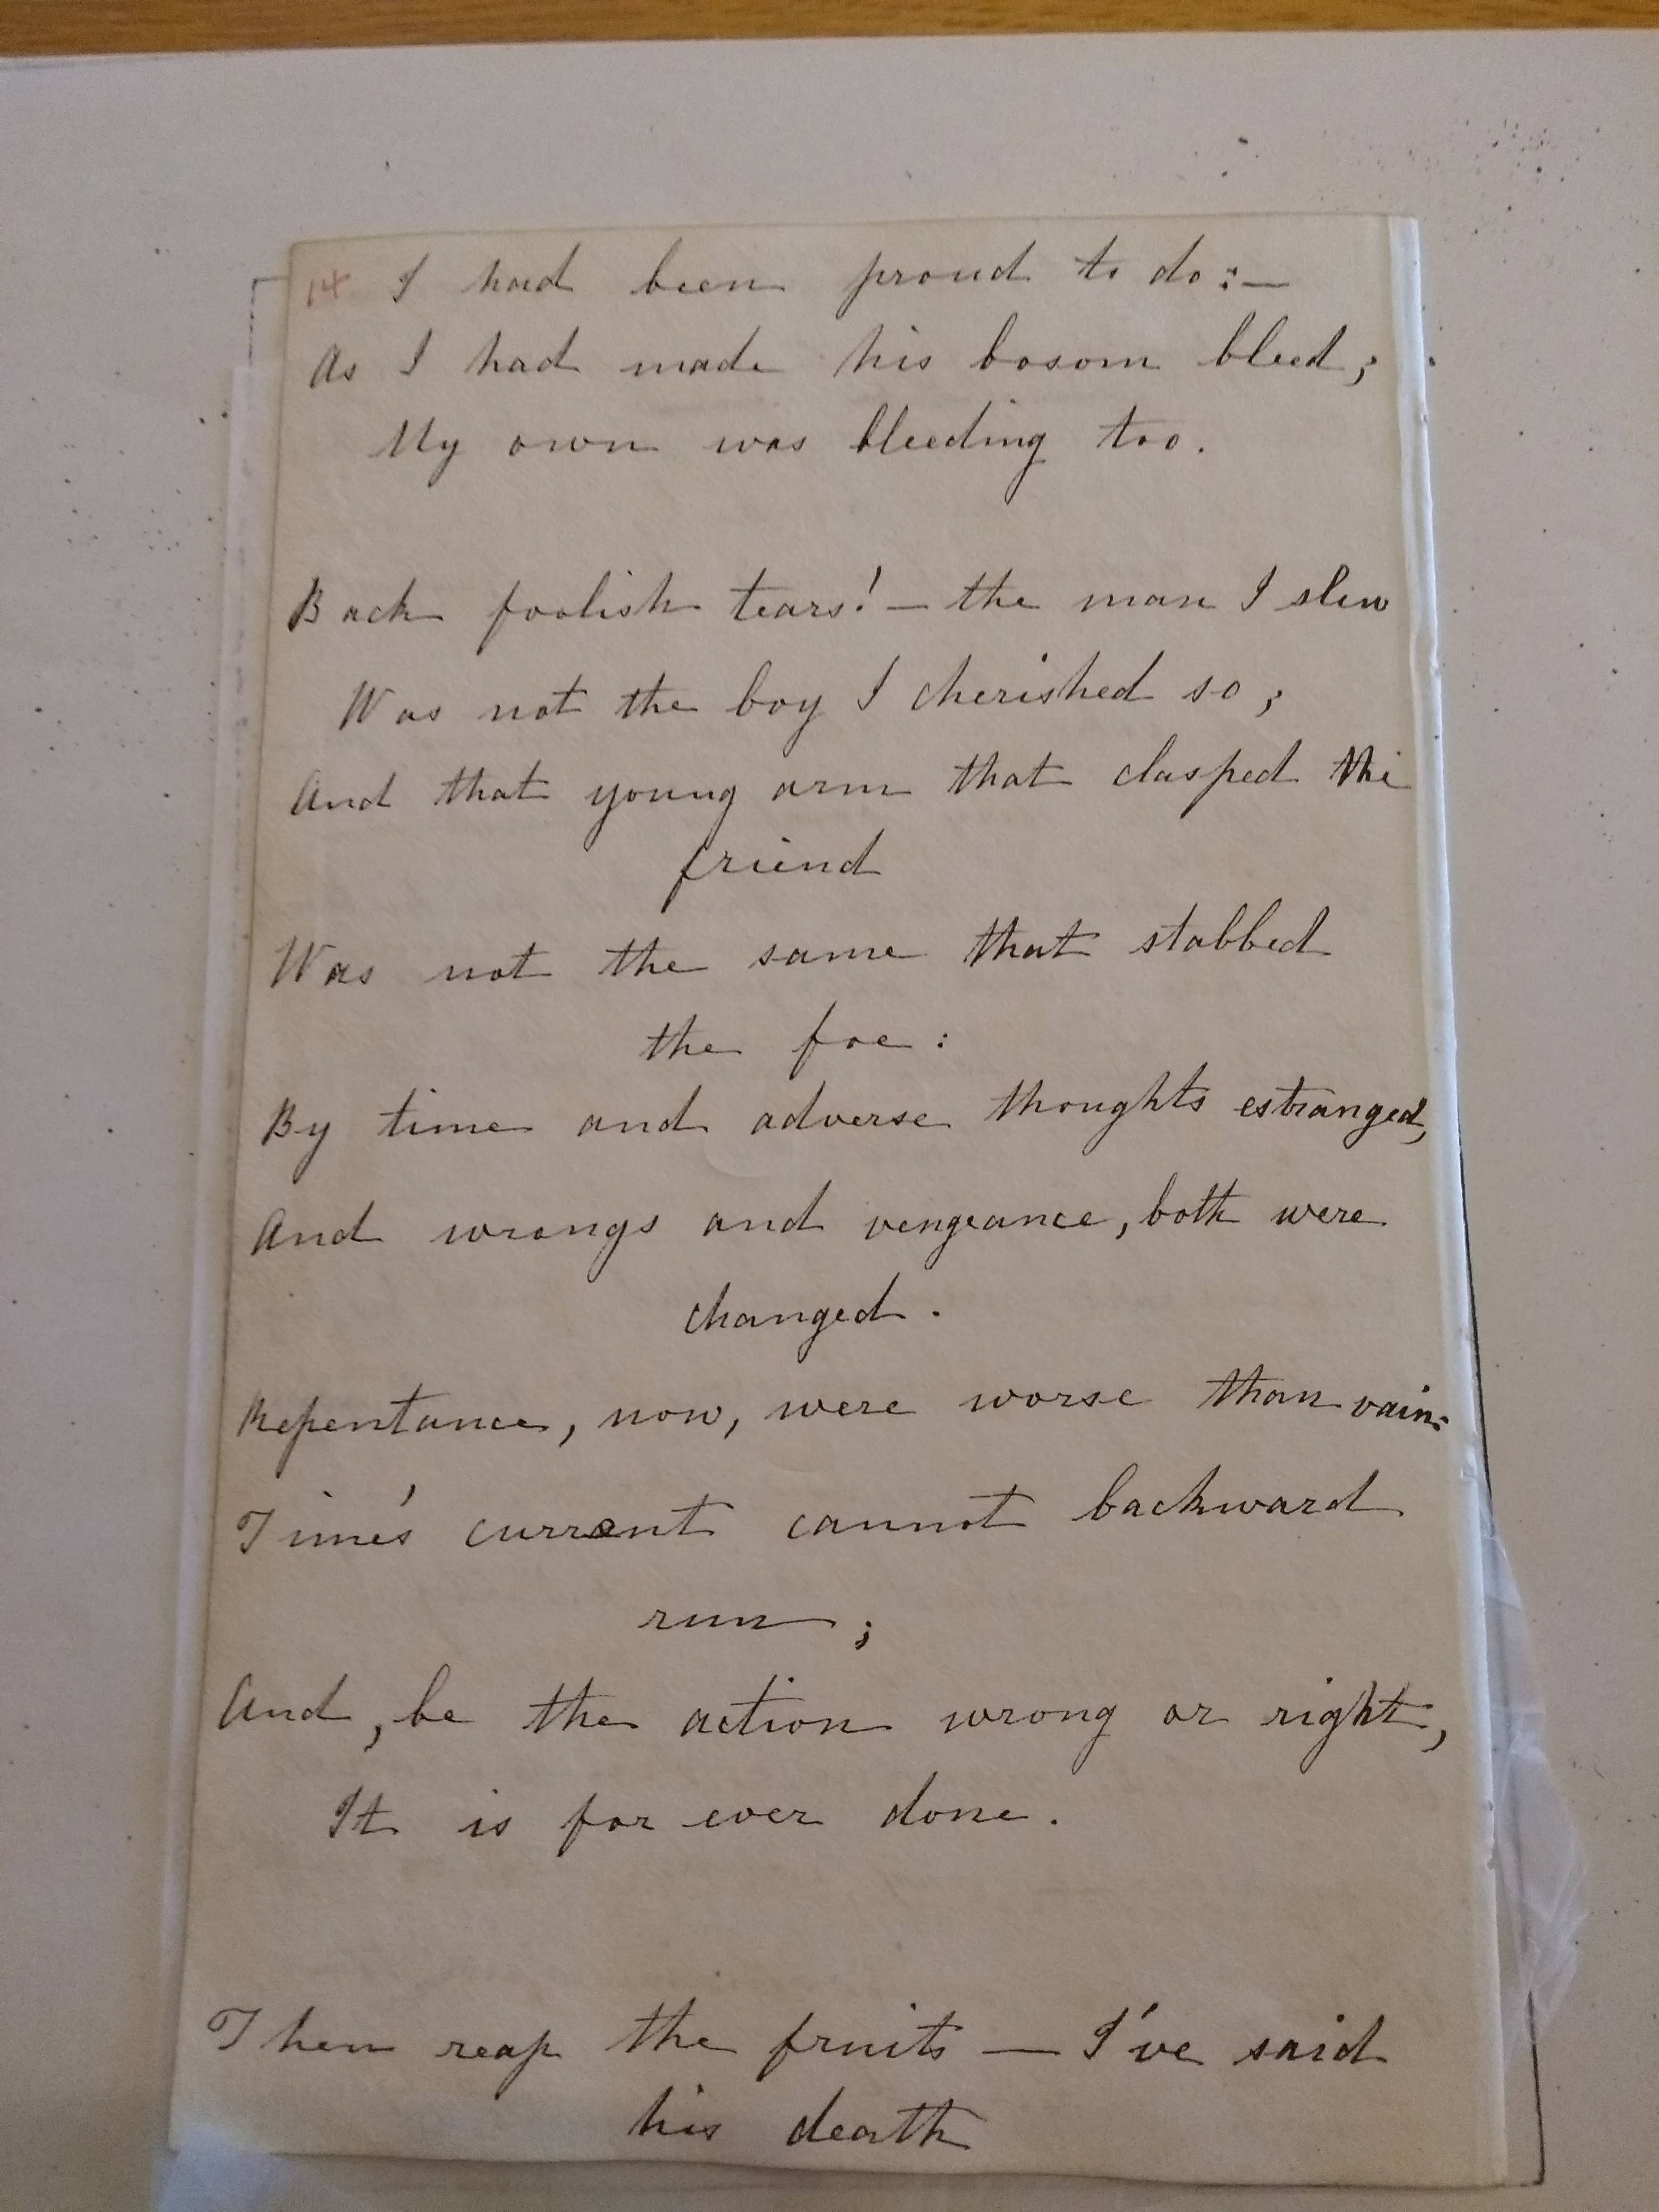 14 I had been proud to do:—
As I had made his bosom bleed;
My own was bleeding too.
Back foolish tears! — the man I slew
Was not the boy I cherished so;
And that young arm that clasped the
friend
Was not the same that stabbed
the foe:
By time and adverse thoughts estranged,
And wrongs and vengeance, both were
changed.
Repentance, now, were worse than vain:
Time's current cannot backward
run;
And, be the action wrong or right,
It is for ever done.
Then reap the fruits — I've said
his death